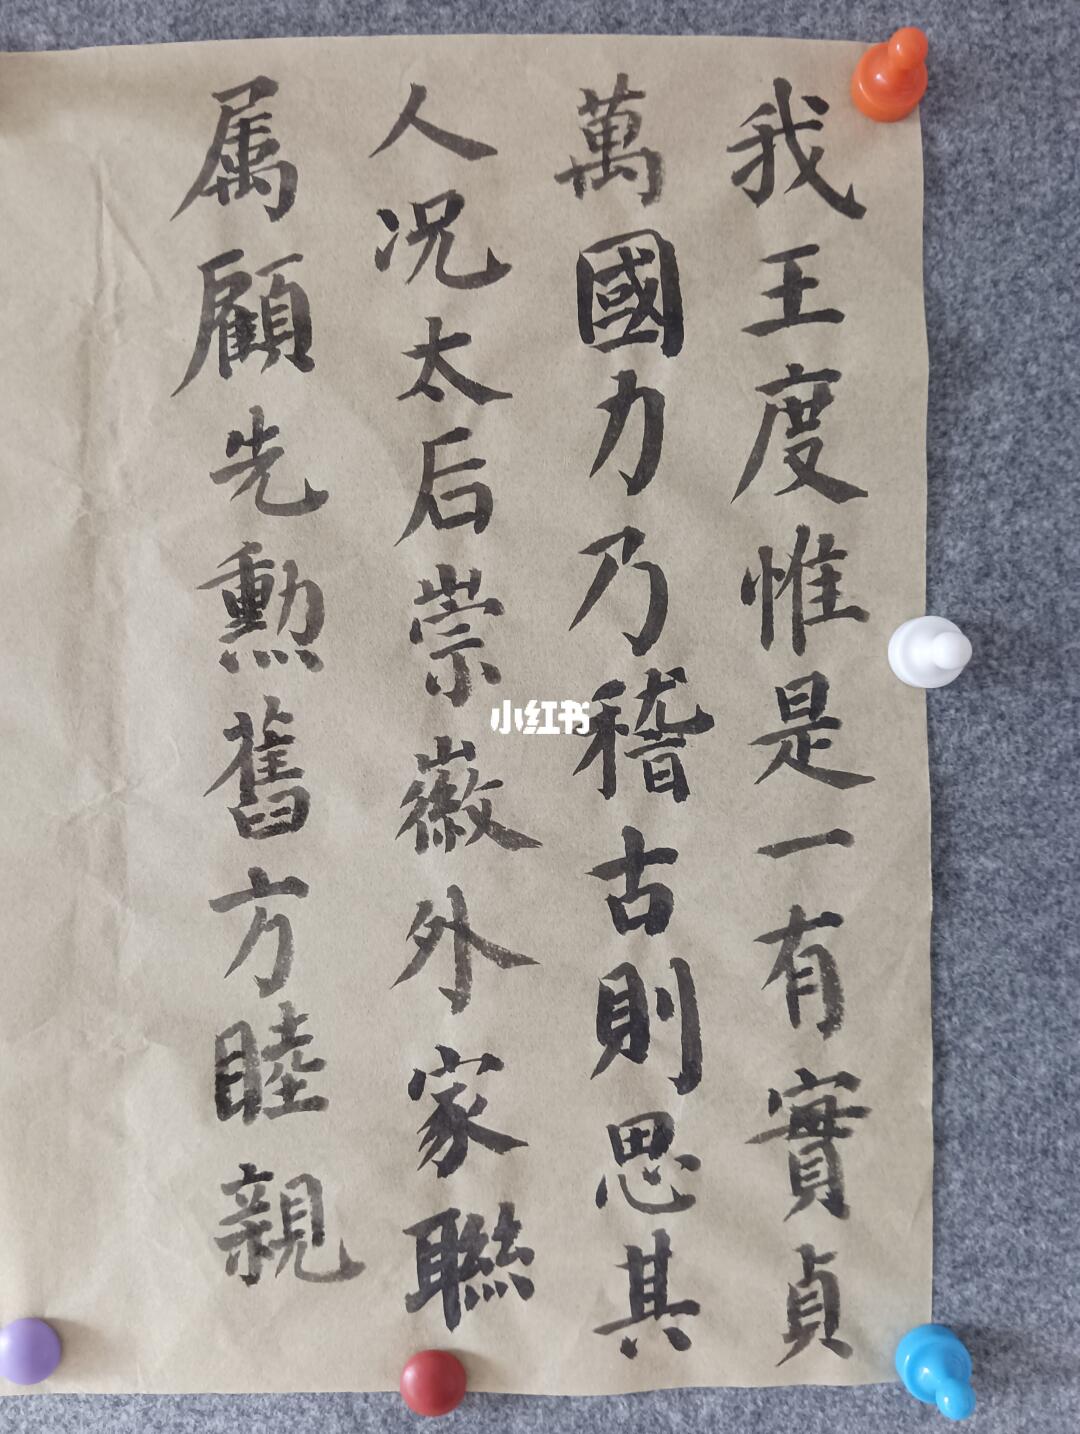 我王度惟是一有實貞
萬國力乃稽古則思其
人况太后崇徽外家聯
属顧先勲舊方睦親
小红书